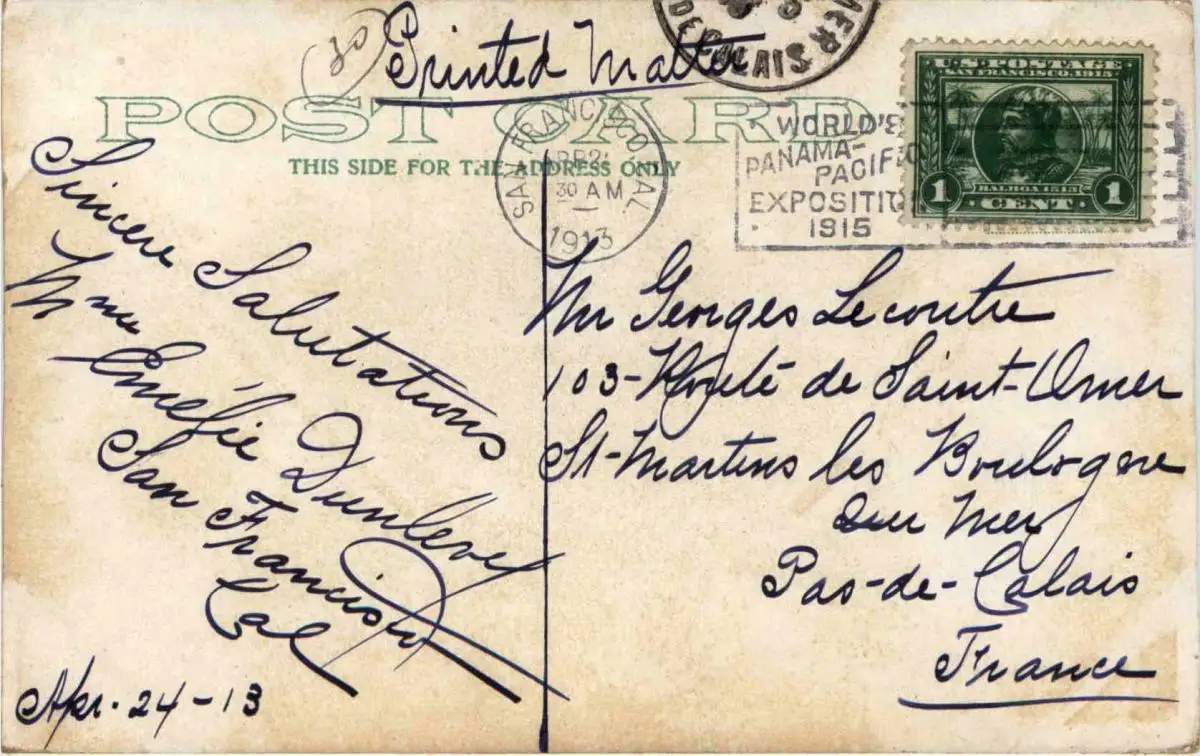 Printed Matter
DE CALAIS
MER
U.S. POSTAGE
SAN FRANCISCO 1915
BALBOA 1513
1 CENT 1
POST CARD
THIS SIDE FOR THE ADDRESS ONLY
SAN FRANCISCO CAL
30 AM
1913
WORLD'S
PANAMA-
PACIFIC
EXPOSITIO
1915
Sincere Salutations
Mme
Dunlevy
San Francisco
Cal
Apr. 24-13
Mr Georges Lecoutre
103-Route de Saint-Omer
St-Martins les Boulogne
sur Mer
Pas-de-Calais
France